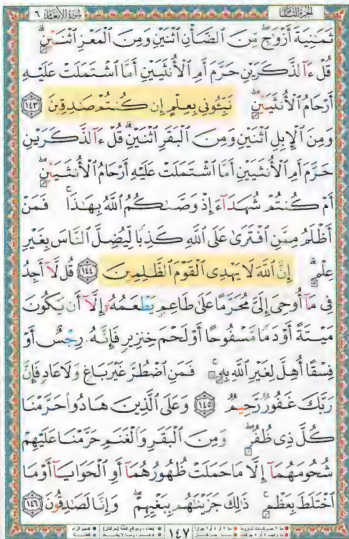 الجزء الثامن سورة الأنعام ٦
ثَمَٰنِيَةَ أَزۡوَٰجٖۖ مِّنَ ٱلضَّأۡنِ ٱثۡنَيۡنِ وَمِنَ ٱلۡمَعۡزِ ٱثۡنَيۡنِۗ
قُلۡ ءَآلذَّكَرَيۡنِ حَرَّمَ أَمِ ٱلۡأُنثَيَيۡنِ أَمَّا ٱشۡتَمَلَتۡ عَلَيۡهِ
أَرۡحَامُ ٱلۡأُنثَيَيۡنِۖ نَبِّـُٔونِي بِعِلۡمٍ إِن كُنتُمۡ صَٰدِقِينَ ١٤٣
وَمِنَ ٱلۡإِبِلِ ٱثۡنَيۡنِ وَمِنَ ٱلۡبَقَرِ ٱثۡنَيۡنِۗ قُلۡ ءَآلذَّكَرَيۡنِ
حَرَّمَ أَمِ ٱلۡأُنثَيَيۡنِ أَمَّا ٱشۡتَمَلَتۡ عَلَيۡهِ أَرۡحَامُ ٱلۡأُنثَيَيۡنِۖ
أَمۡ كُنتُمۡ شُهَدَآءَ إِذۡ وَصَّىٰكُمُ ٱللَّهُ بِهَٰذَاۚ فَمَنۡ
أَظۡلَمُ مِمَّنِ ٱفۡتَرَىٰ عَلَى ٱللَّهِ كَذِبٗا لِّيُضِلَّ ٱلنَّاسَ بِغَيۡرِ
عِلۡمٍۚ إِنَّ ٱللَّهَ لَا يَهۡدِي ٱلۡقَوۡمَ ٱلظَّٰلِمِينَ ١٤٤ قُل لَّآ أَجِدُ
فِي مَآ أُوحِيَ إِلَيَّ مُحَرَّمًا عَلَىٰ طَاعِمٖ يَطۡعَمُهُۥٓ إِلَّآ أَن يَكُونَ
مَيۡتَةً أَوۡ دَمٗا مَّسۡفُوحًا أَوۡ لَحۡمَ خِنزِيرٖ فَإِنَّهُۥ رِجۡسٌ أَوۡ
فِسۡقًا أُهِلَّ لِغَيۡرِ ٱللَّهِ بِهِۦۚ فَمَنِ ٱضۡطُرَّ غَيۡرَ بَاغٖ وَلَا عَادٖ فَإِنَّ
رَبَّكَ غَفُورٞ رَّحِيمٞ ١٤٥ وَعَلَى ٱلَّذِينَ هَادُواْ حَرَّمۡنَا
كُلَّ ذِي ظُفُرٖۖ وَمِنَ ٱلۡبَقَرِ وَٱلۡغَنَمِ حَرَّمۡنَا عَلَيۡهِمۡ
شُحُومَهُمَآ إِلَّا مَا حَمَلَتۡ ظُهُورُهُمَآ أَوِ ٱلۡحَوَايَآ أَوۡ مَا
ٱخۡتَلَطَ بِعَظۡمٖۚ ذَٰلِكَ جَزَيۡنَٰهُم بِبَغۡيِهِمۡۖ وَإِنَّا لَصَٰدِقُونَ ١٤٦
١٤٧